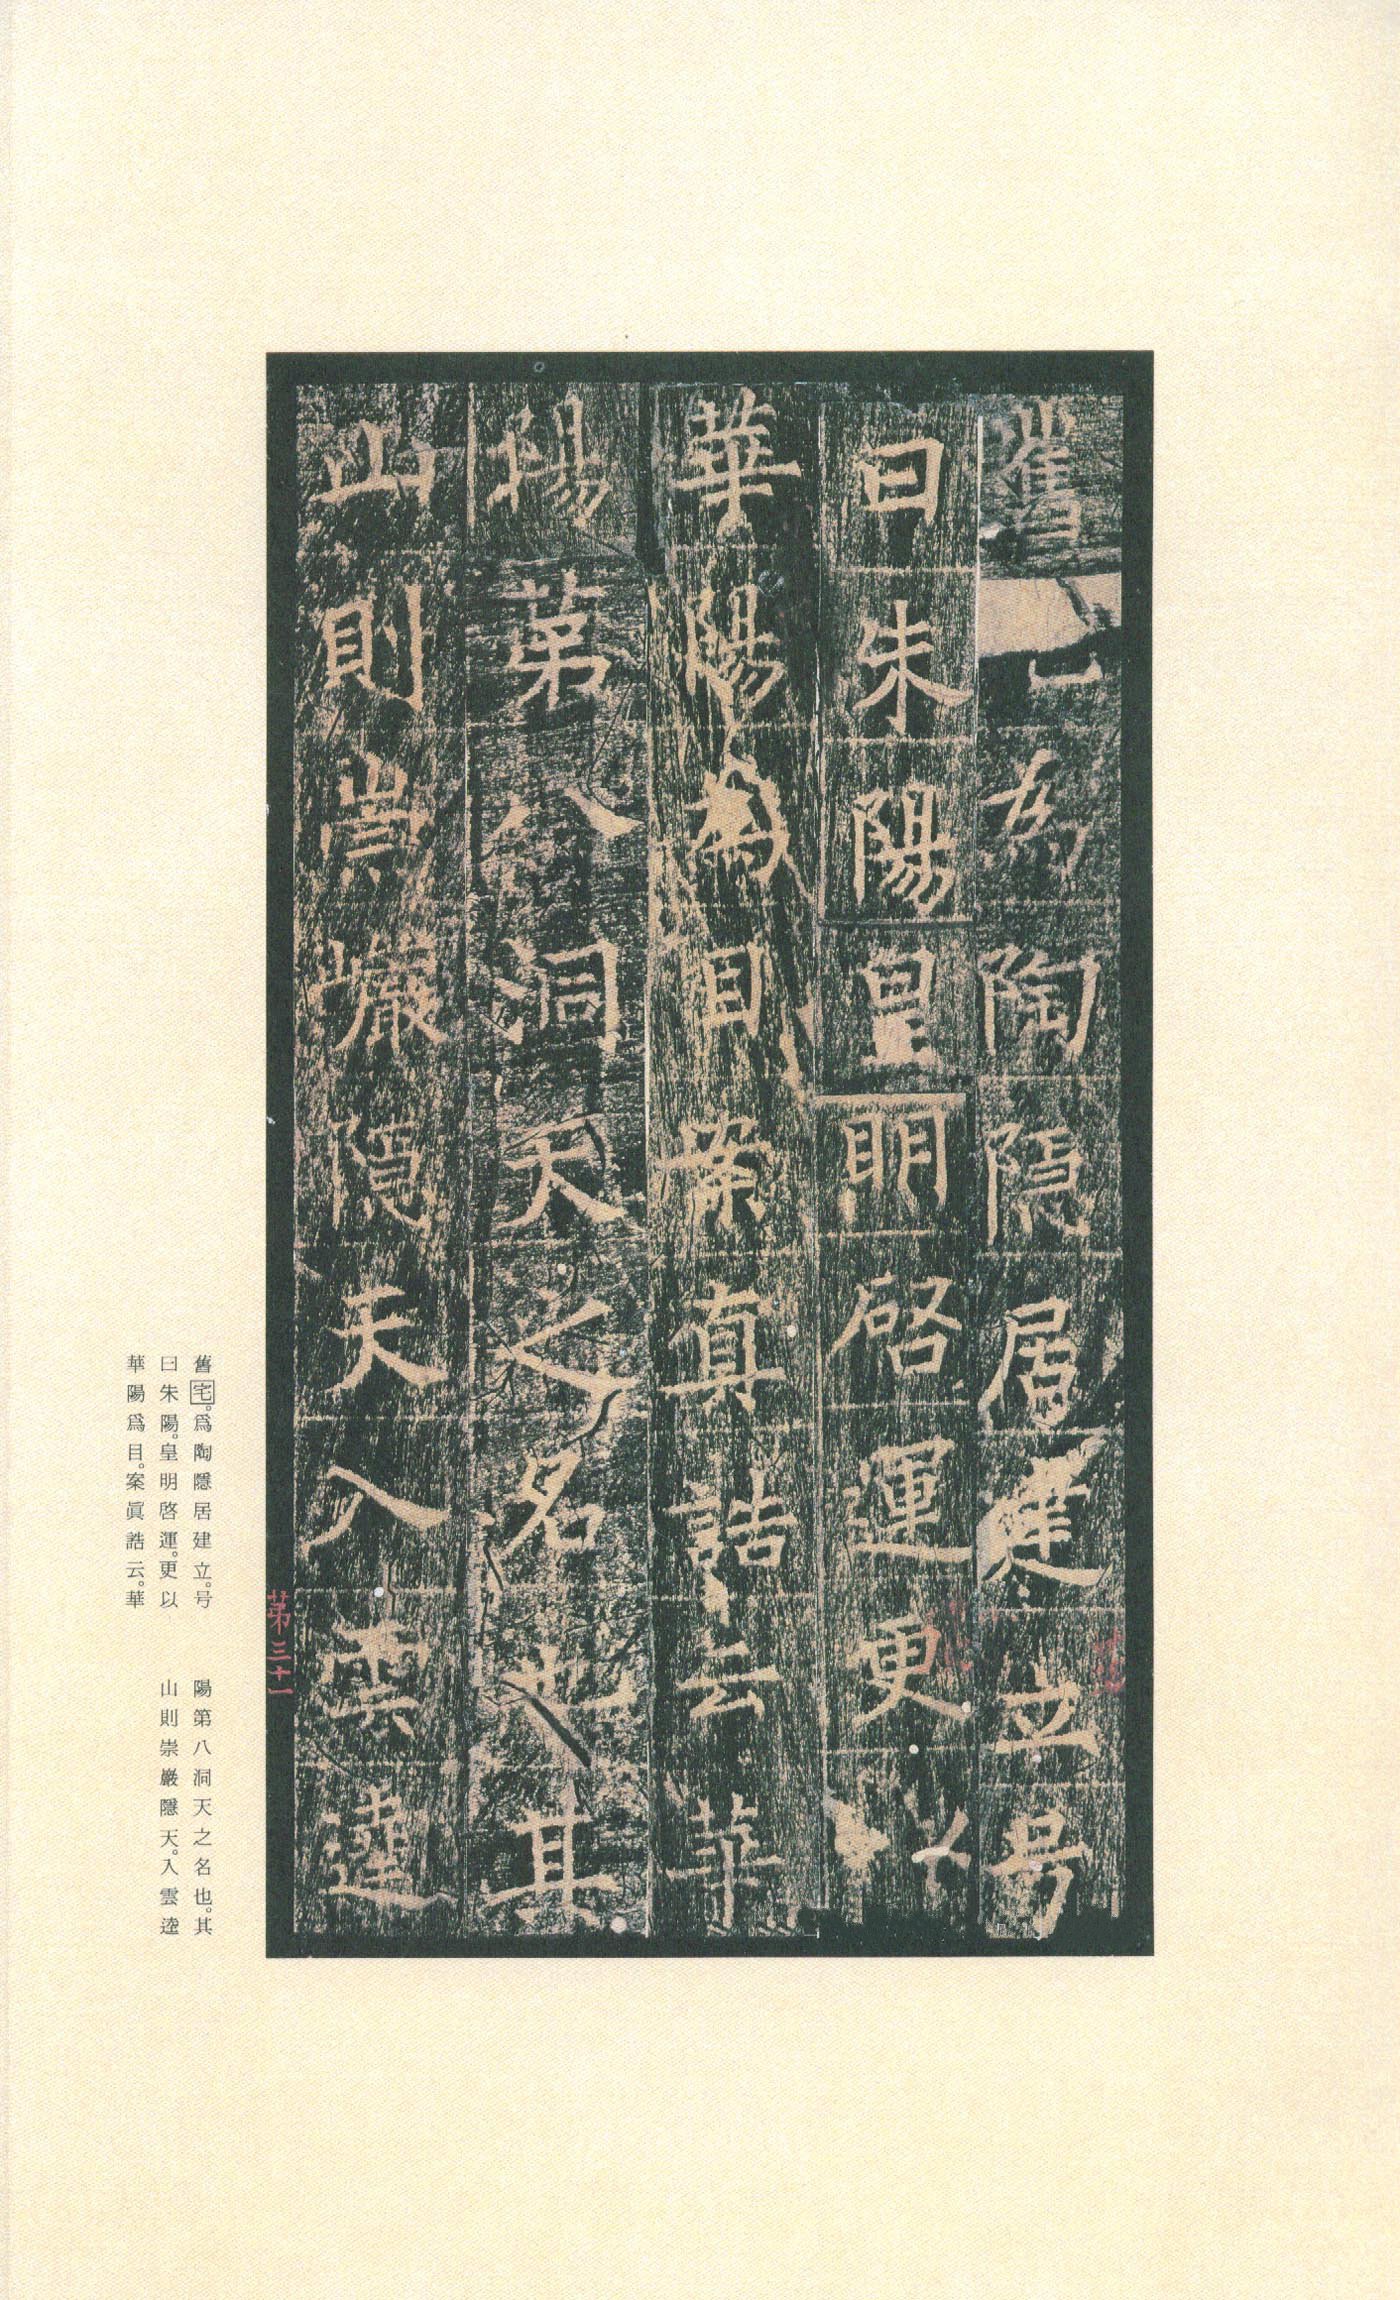 舊　為陶隱居建立号
曰朱陽皇明啓運更以
華陽為目案真誥云華
陽第八洞天之名也其
山則崇巖隱天入雲逵
第三十一
舊宅。爲陶隱居建立。号
曰朱陽。皇明啓運。更以
華陽爲目。案眞誥云。華
陽第八洞天之名也。其
山則崇巖隱天。入雲逵